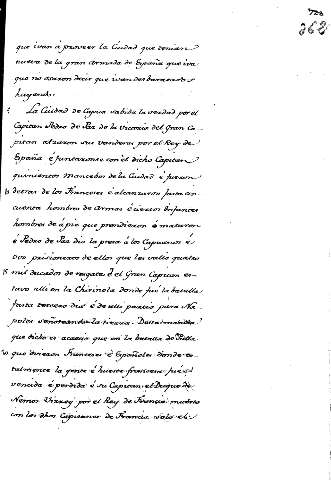 723
368
que ivan á proveer la Ciudad que tenian
nueva de la gran Armada de España que iva
que no osaron decir que ivan desbaratados
huyendo.
La Ciudad de Capua sabida la verdad por el
Capitan Pedro de Paz de la victoria del Gran Ca-
pitan alzaron sus vanderas por el Rey de
España é juntaronse con el dicho Capitan
quinientos Mancebos de la Ciudad é fueron
detras de los Franceses é alcanzaron fasta cin-
cuenta hombres de Armas é ciertos Infantes
hombres de á pie que prendieron é mataron
é Pedro de Paz dió la presa á los Capuanos é
dos prisioneros de ellos que les valió quatro
mil ducados de rescate é el Gran Capitan es-
tuvo alli en la Chirinola donde fué la batalla
fasta tercero dia é de alli partió para Na-
poles señoreando la tierra. De esta manera
que dicho es acaeció que en la batalla de
que dieron Franceses é Españoles donde to-
talmente la gente é hueste francesa fué
vencida é perdida é su Capitan el Duque de
Nemos Visrey por el Rey de Francia muerto
con los otros Capitanes de Francia solo el